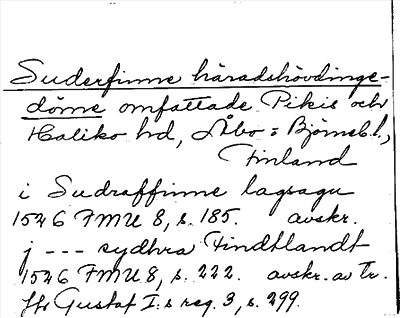 Suderfinne häradshövdinge-
döme omfattade Pikis och
Haliko hd, Åbo = Björneb. l.,
Finland
i Sudraffinne lagsagu
1546 FMU 8, s. 185. avskr.
j --- sydhra Findtlandt
1546 FMU 8, s. 222. avskr. av Tr.
Gustaf I:s reg. 3, s. 299.